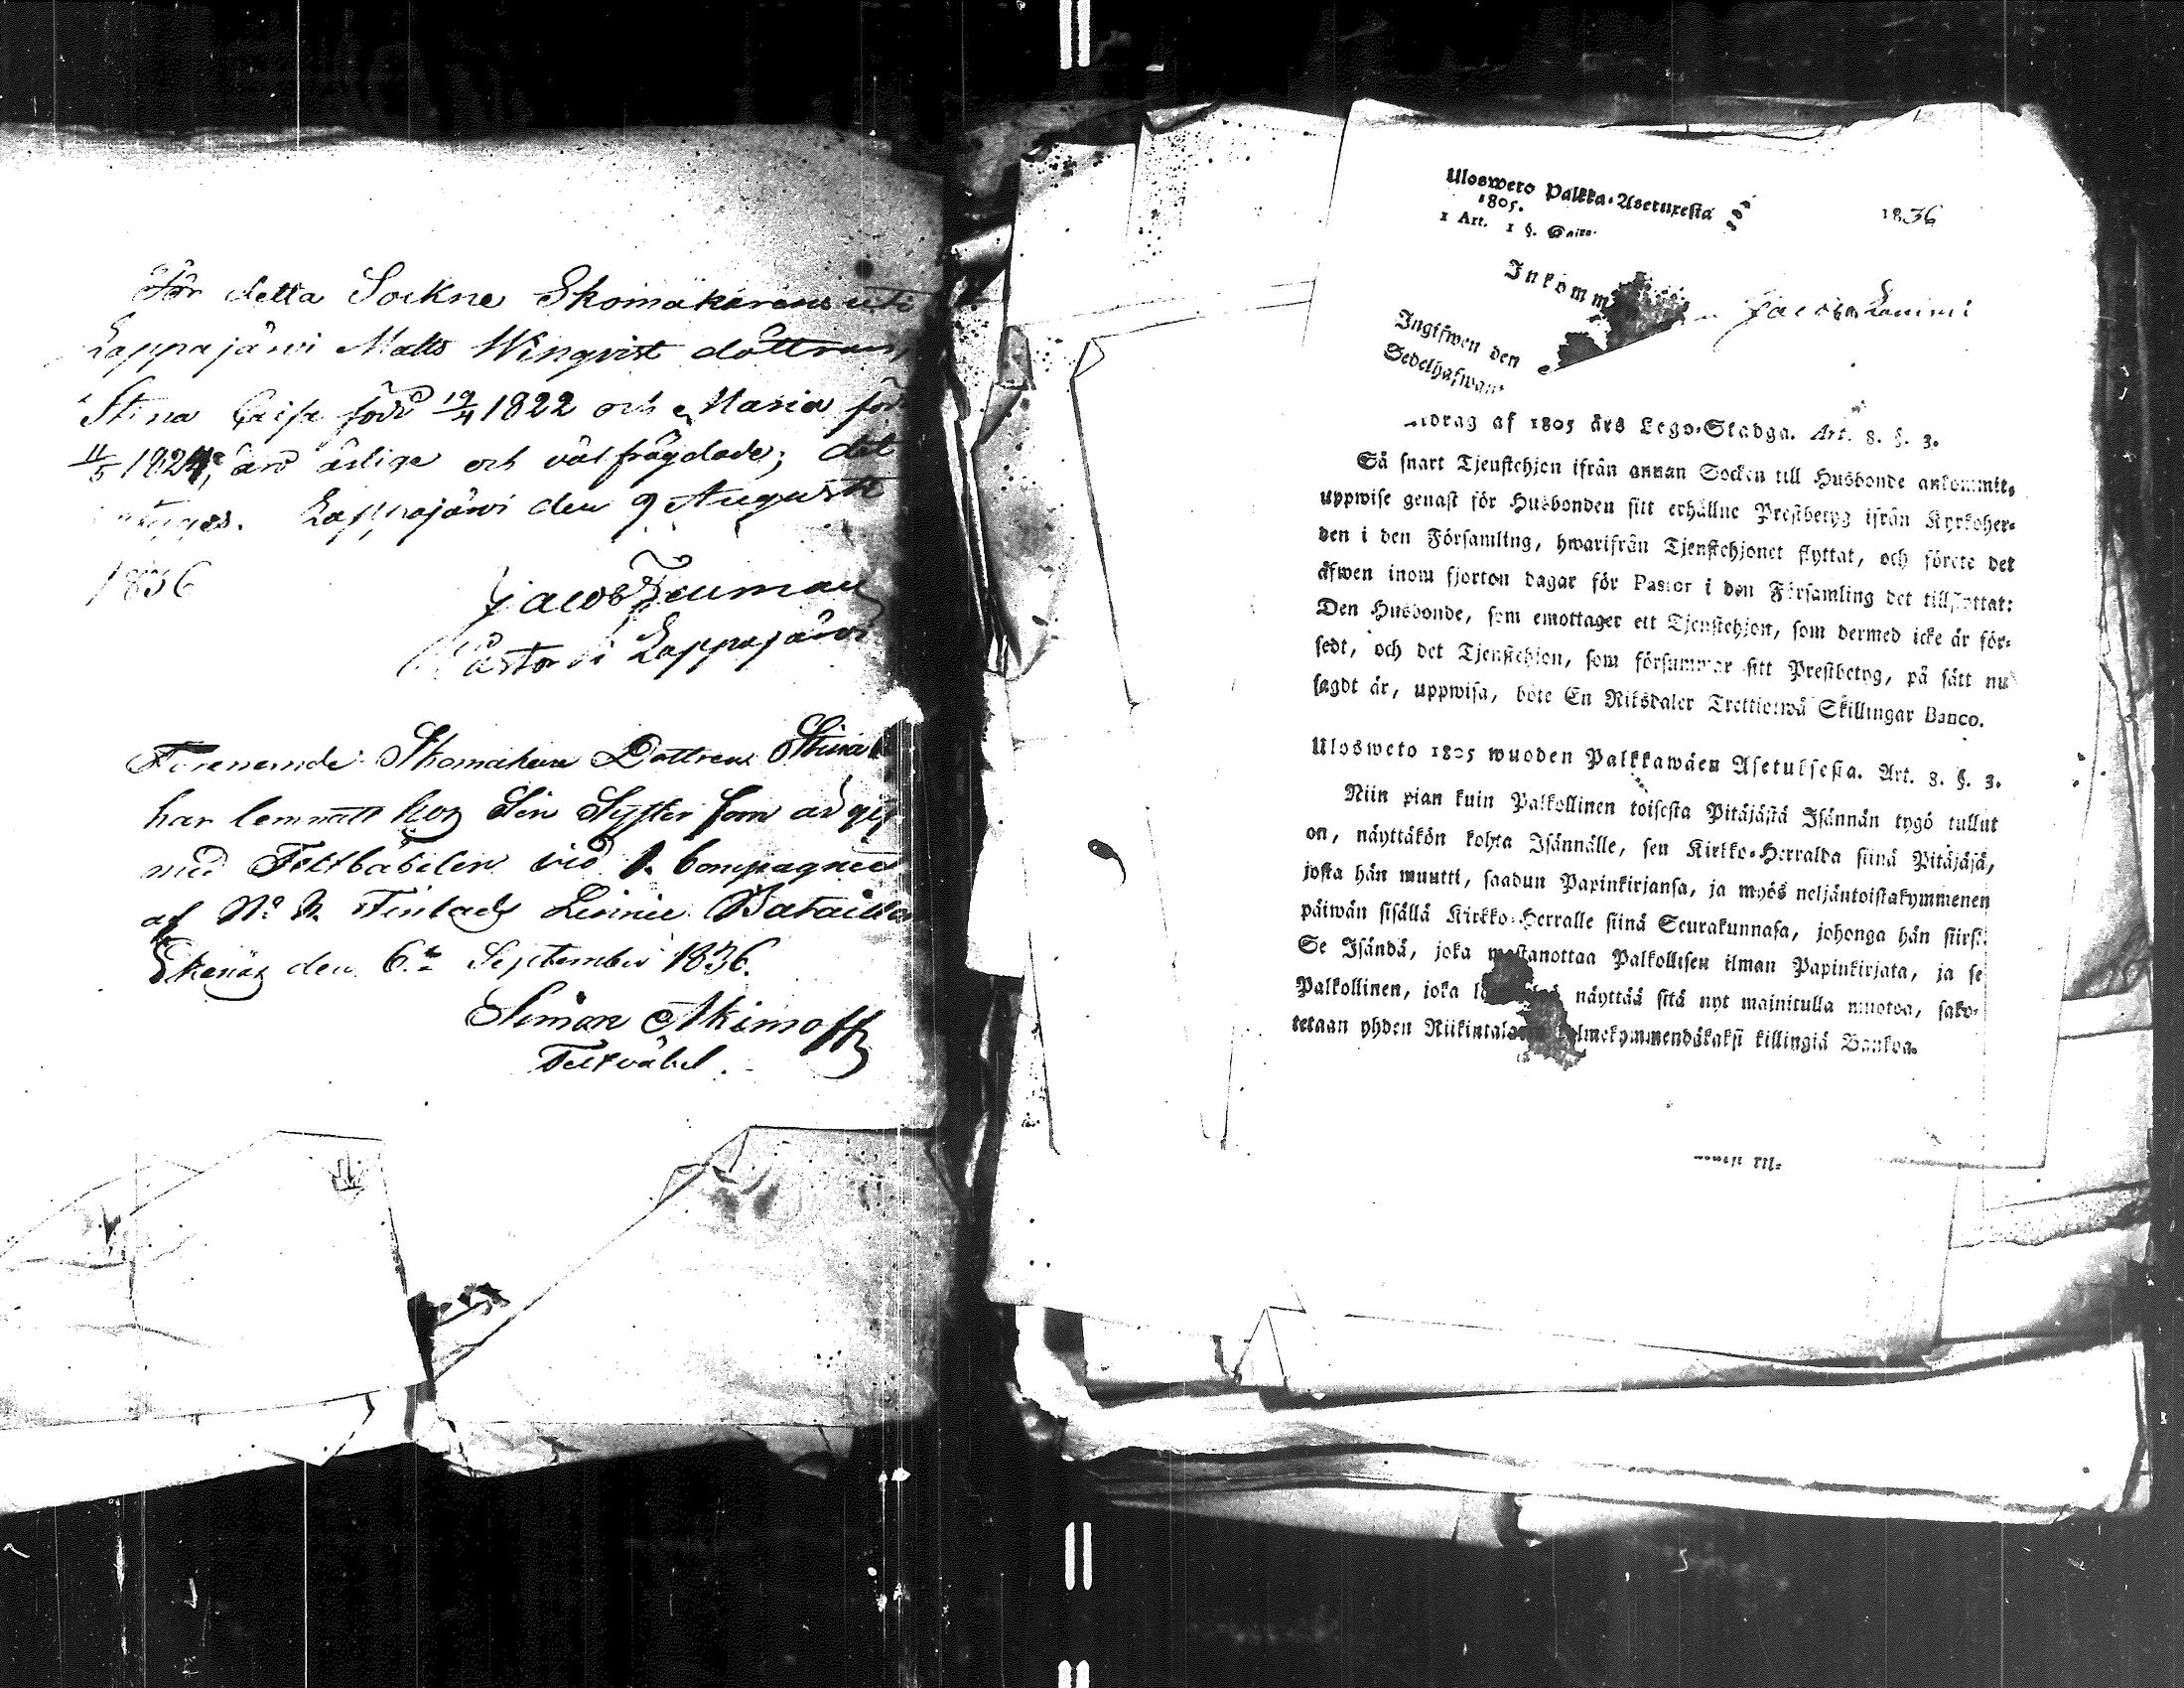 För detta Sockne Skomakarens uti
Lappajärwi Matts Winqvist döttrar,
Stina Caisa född 19/4 1822 och Maria föd
11/5 1824, äro ärlige och välfrägdade; det
Lappajärwi den 9 Augusti
1836
Jacob Feuman
Pastor i Lappajärwi
Förenemde Skomakare Dottren Stina
har lemnatt hos Sin Syster som är gif
med Feltbäbelen vid 1. Compagnie
af No Finlads Linnie Batallion
Ekenäs den 6te September 1836.
Simon Akimoff
Feltväbel.
Ulosweto Palkka-Asetuxesta
1805.
1 Art. 1 §.
1836
Inkomm
Jacob
Ingifwen den
Sedelhafwan
drag af 1805 års Lego-Stadga. Art. 8. §. 3.
Så snart Tjenstehjon ifrån annan Socken till Husbonde ankommit,
uppwise genast för Husbonden sitt erhållne Prestbetyg ifrån Kyrkoher-
den i den Församling, hwarifrån Tjenstehjonet flyttat, och förete det
äfwen inom fjorton dagar för Pastor i den Församling det tillflyttat:
Den Husbonde, som emottager ett Tjenstehjon, som dermed icke är för-
sedt, och det Tjenstehjon, som försummar sitt Prestbetyg, på sätt nu
sagdt är, uppwisa, böte En Riksdaler Trettiotwå Skillingar Banco.
Ulosweto 1805 wuoden Palkkawäen Asetuksesta. Art. 8. §. 3.
Niin pian kuin Palkollinen toisesta Pitäjästä Isännän tygö tullut
on, näyttäkön kohta Isännälle, sen Kirkko-Herralda siinä Pitäjäsä,
josta hän muutti, saadun Papinkirjansa, ja myös neljäntoistakymmenen
päiwän sisällä Kirkko-Herralle siinä Seurakunnasa, johonga hän siirsi:
Se Isändä, joka wastanottaa Palkollisen ilman Papinkirjata, ja se
Palkollinen, joka näyttää sitä nyt mainitulla muotoa, sako-
tetaan yhden Riikintalarin kolmekymmendäkaksi killingiä Bankoa.